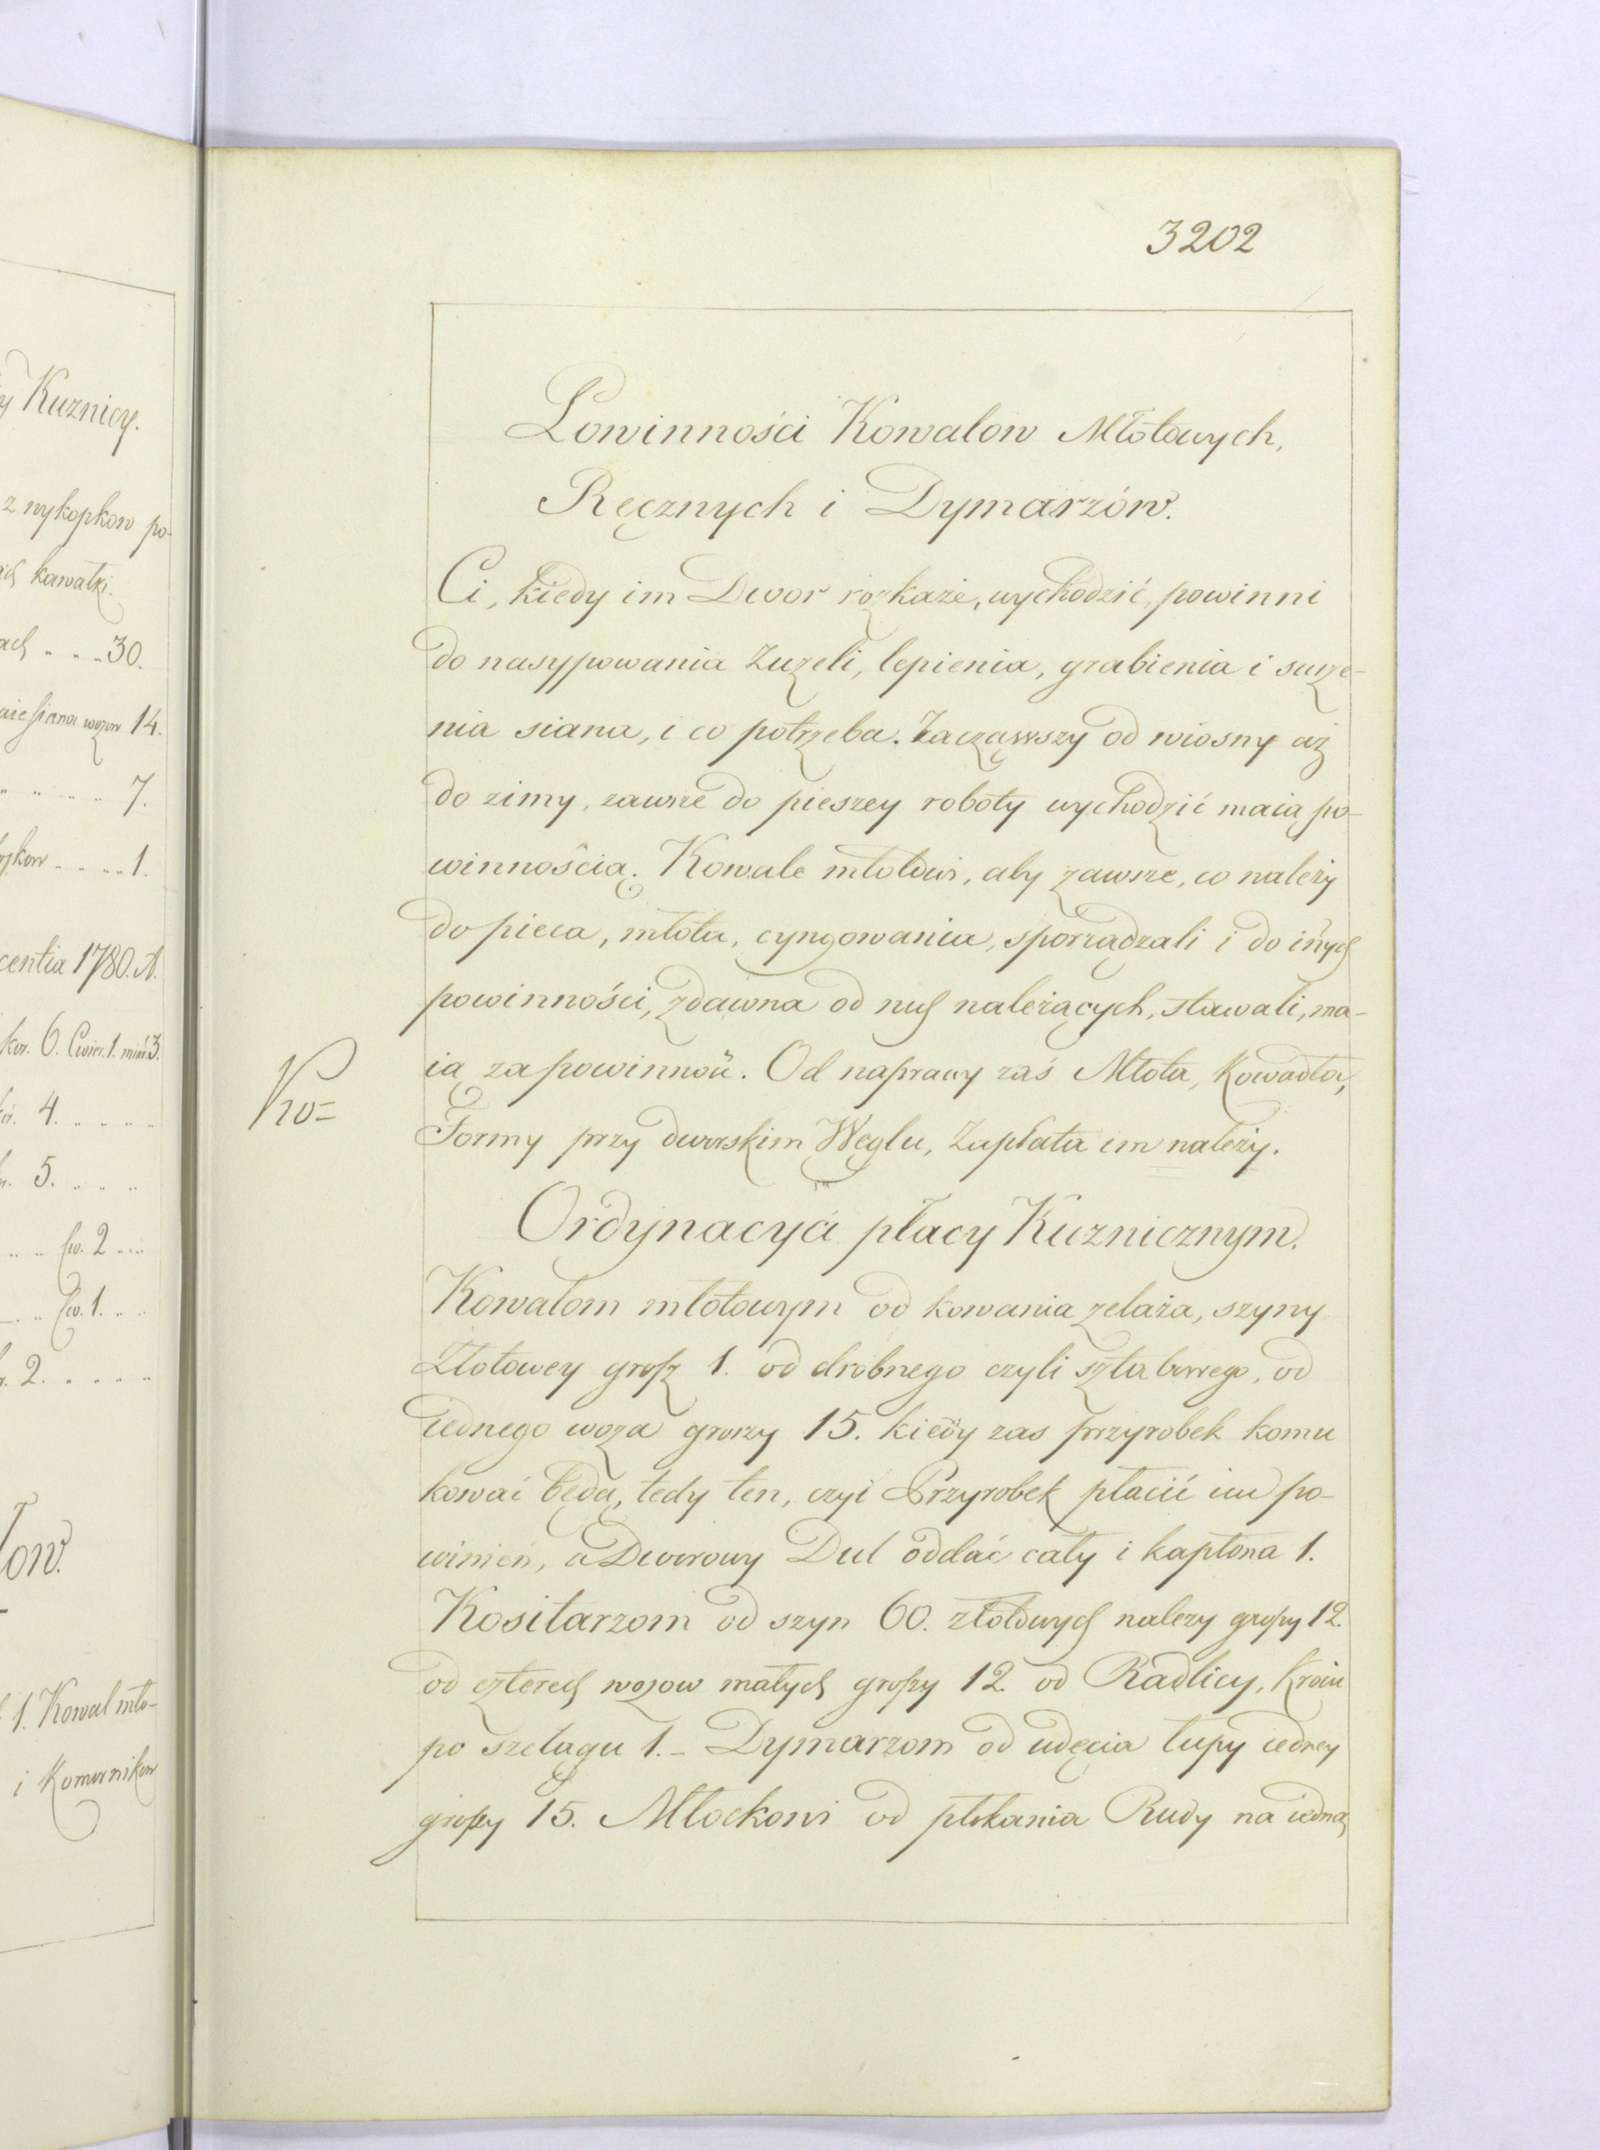 y Kuznicy.
z wykopkow po-
kawałki.
ach . . . 30.
siana wozow 14.
7.
1.
centia 1780. A.
kor. 6. Cwier. 1. miar. 3.
4. . . . .
5. . . . .
Cw. 2 . . .
Cw. 1. . .
2. . . . . .
ow.
1. Kowal mło-
i Komornikow
3202
Powinności Kowalow Młotowych,
Ręcznych i Dymarzów.
Ci, kiedy im Dwor rozkaże, wychodzić, powinni
do nasypowania Zuzeli, lepienia, grabienia i susze-
nia siana, i co potrzeba. Zacząwszy od wiosny aż
do zimy, zawsze do pieszey roboty wychodzić maią po-
winnością. Kowale młotowi, aby zawsze, co należy
do pieca, młota, cyngowania, sporządzali i do inych
powinności, zdawna od nich należących, stawali, ma-
ią za powinność. Od naprawy zaś Młota, Kowadła,
Formy przy dworskim Węglu, Zapłata im należy.
Ko=
Ordynacya płacy Kuznicznym.
Kowalom młotowym od kowania zelaża, szyny
Złotowey grosz 1. od drobnego czyli sztabowego, od
iednego woza groszy 15. kiedy zas przyrobek komu
kować będą, tedy ten, czyi Przyrobek płacić im po-
winień, a Dworowy Dul oddać cały i kapłona 1.
Kositarzom od szyn 60. złotowych nalezy groszy 12.
od czterech wozow małych groszy 12. od Radlicy, Kroiu
po szelągu 1. - Dymarzom od udęcia łupy iedney
groszy 15. Młockowi od płokania Rudy na iedną